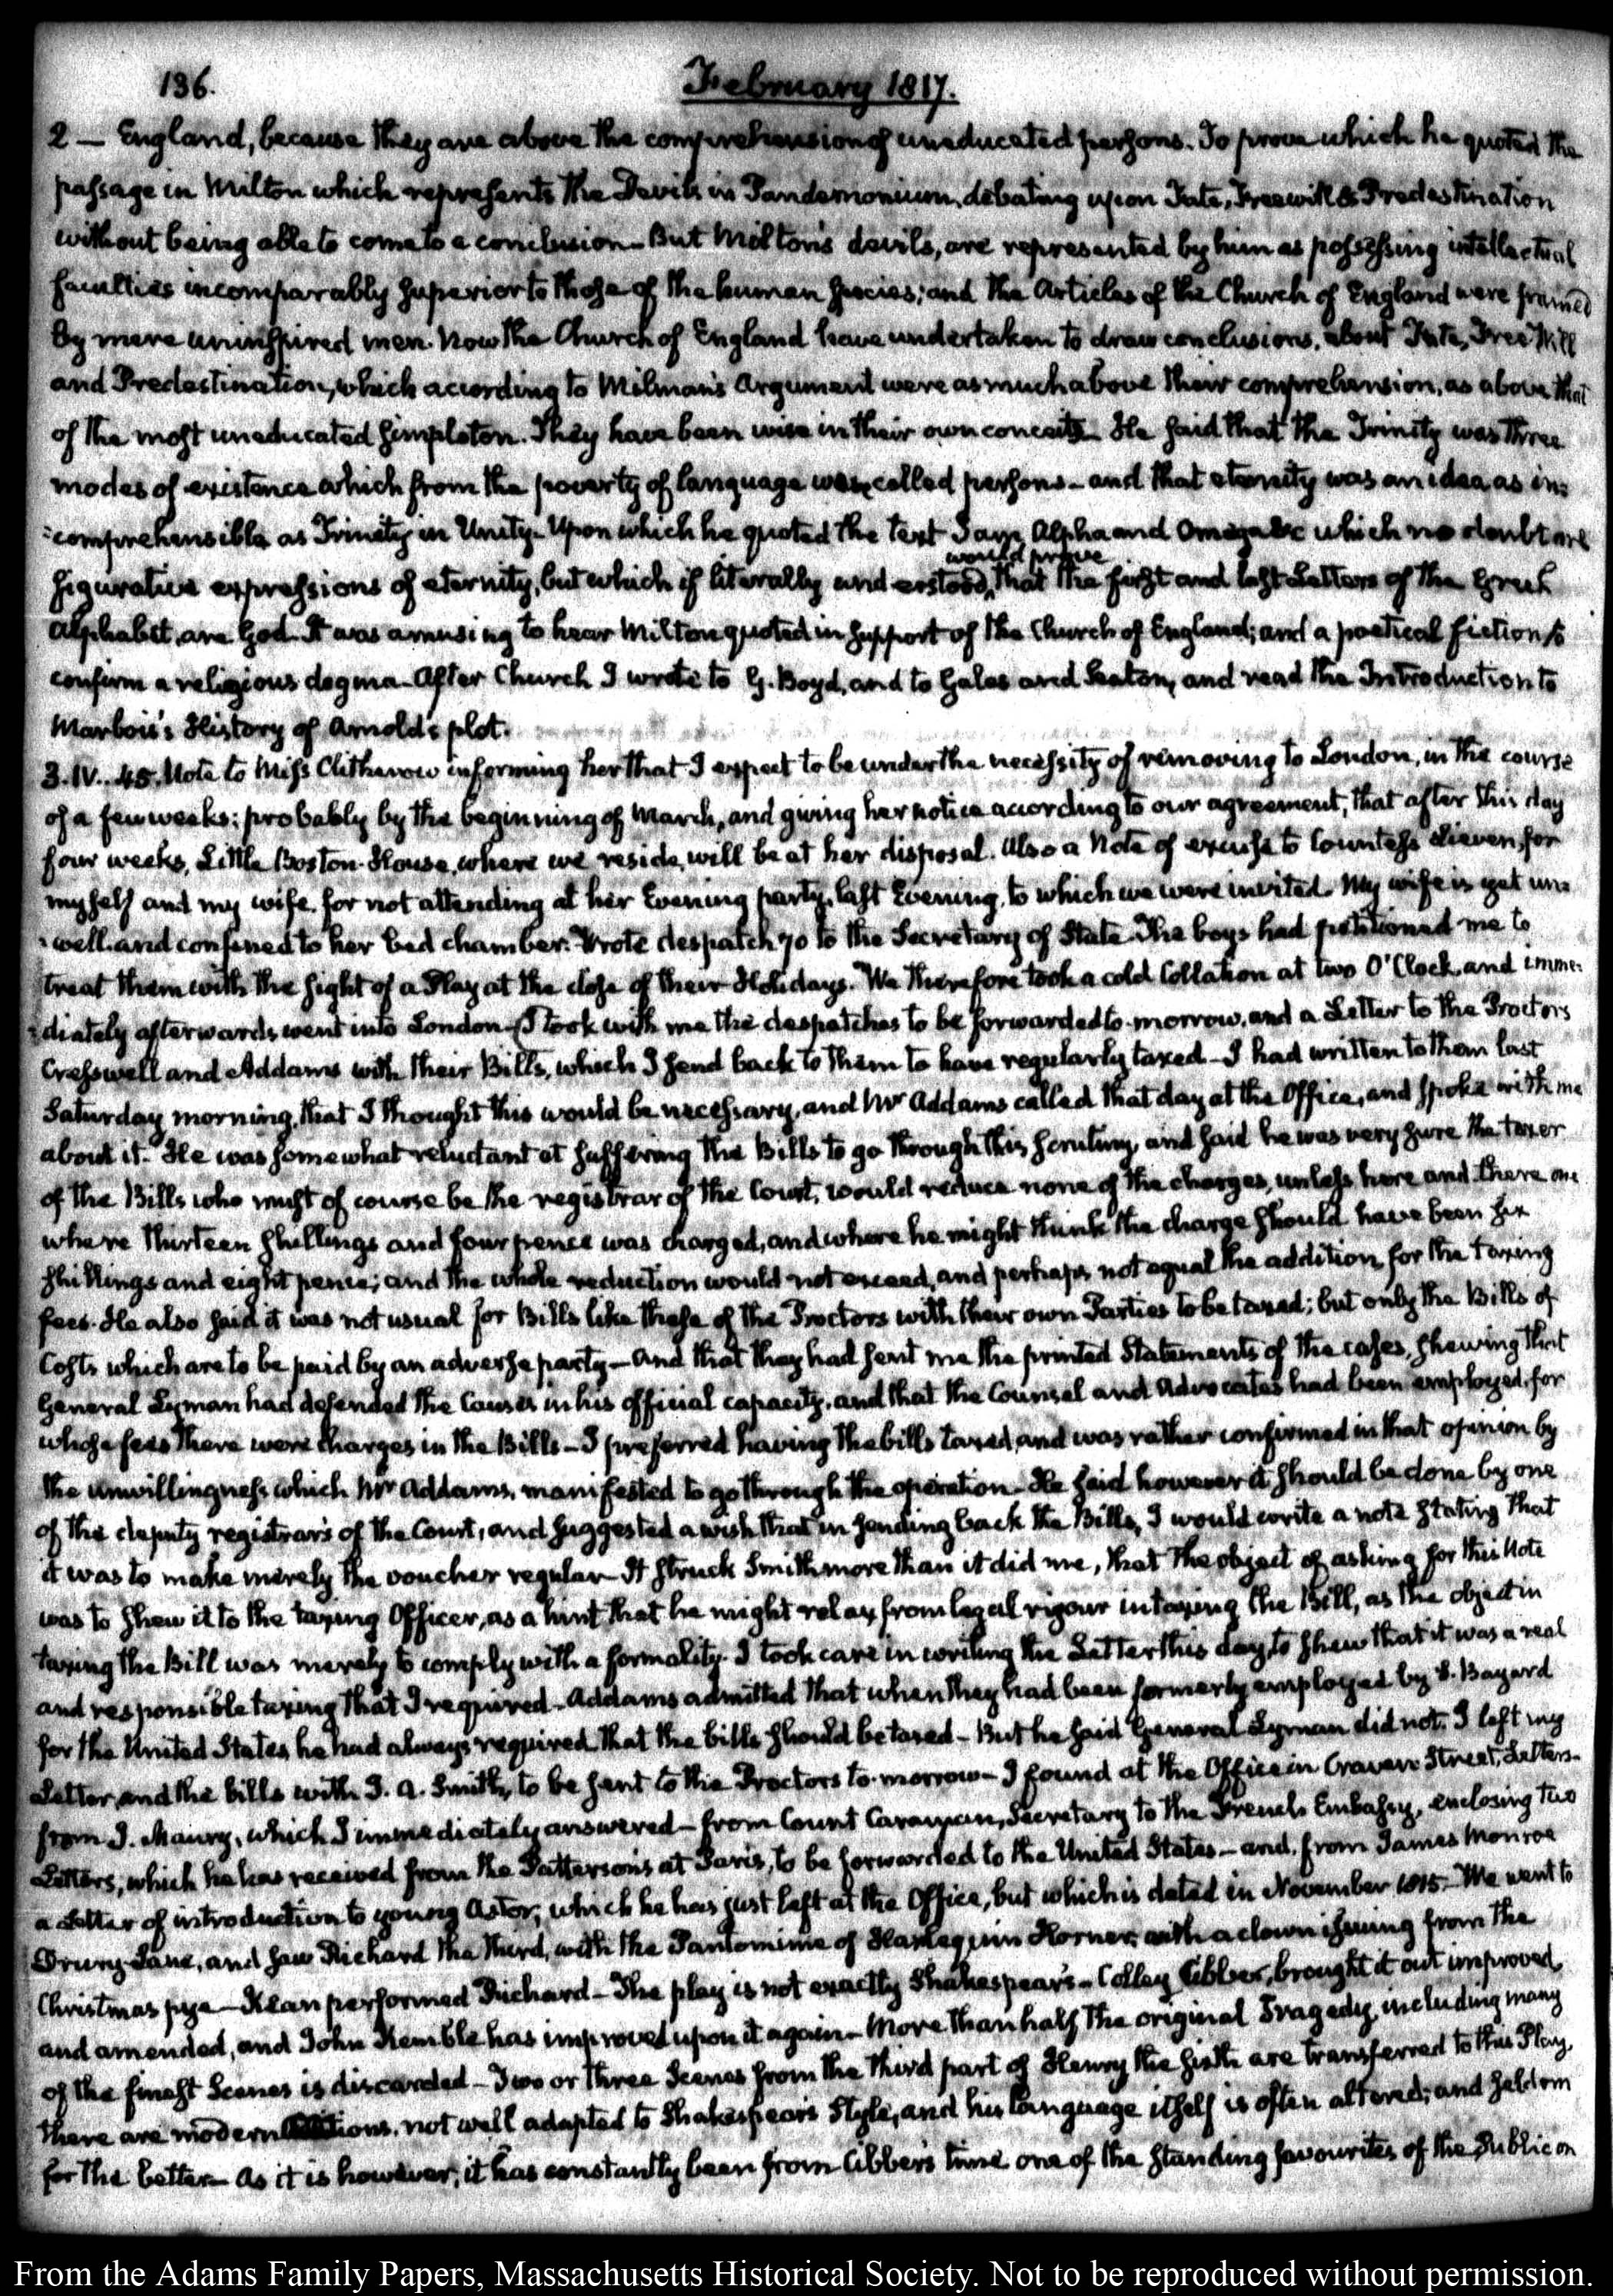 136.
February 1817.
2 — England, because they are above the comprehension of uneducated persons. To prove which he quoted the
passage in Milton which represents the Devils in Pandemonium, debating upon Fate, Freewill & Predestination
without being able to come to a conclusion — But Milton's devils, are represented by him as possessing intellectual
faculties incomparably superior to those of the human species; and the Articles of the Church of England were framed
by mere uninspired men. Now the Church of England have undertaken to draw conclusions, about Fate, Free Will
and Predestination, which according to Milman's Argument were as much above their comprehension, as above that
of the most uneducated simpleton. They have been wise in their own conceits — He said that the Trinity was three
modes of existence which from the poverty of language were called persons — and that eternity was an idea, as in=
=comprehensible as Trinity in Unity — Upon which he quoted the text I am Alpha and Omega &c which no doubt are
would prove
figurative expressions of eternity, but which if literally understood, that the first and last Letters of the Greek
alphabet, are God. It was amusing to hear Milton quoted in support of the Church of England; and a poetical fiction to
confirm a religious dogma — After Church I wrote to G. Boyd, and to Gales and Seaton, and read the Introduction to
Marbois's History of Arnold's plot.
3. IV.. 45. Note to Miss Clitherow informing her that I expect to be under the necessity of removing to London, in the course
of a few weeks; probably by the beginning of March, and giving her notice according to our agreement, that after this day
four weeks, Little Boston House, where we reside, will be at her disposal. Also a Note of excuse to Countess Lieven, for
myself and my wife, for not attending at her Evening party, last Evening, to which we were invited. My wife is yet un=
=well and confined to her bed chamber. Wrote despatch 70 to the Secretary of State. The boys had petitioned me to
treat them with the sight of a Play at the close of their Holidays. We therefore took a cold Collation at two O'Clock, and imme=
=diately afterwards went into London — I took with me the despatches to be forwarded to-morrow, and a Letter to the Proctors
Cresswell and Addams with their Bills, which I send back to them to have regularly taxed — I had written to them last
Saturday morning, that I thought this would be necessary, and Mr Addams called that day at the Office, and spoke with me
about it. He was somewhat reluctant at suffering the Bills to go through this scrutiny, and said he was very sure the taxer
of the Bills who must of course be the registrar of the Court, would reduce none of the charges, unless here and there one
where thirteen shillings and four pence was charged, and where he might think the charge should have been six
shillings and eight pence; and the whole reduction would not exceed, and perhaps not equal the addition, for the taxing
fees. He also said it was not usual for Bills like these of the Proctors with their own Parties to be taxed; but only the Bills of
Costs which are to be paid by an adverse party — And that they had sent me the printed Statements of the cases, shewing that
General Lyman had defended the Causes in his official capacity, and that the Counsel and Advocates had been employed, for
whose fees there were charges in the Bills — I preferred having the bills taxed, and was rather confirmed in that opinion by
the unwillingness which Mr Addams, manifested to go through the operation — He said however it should be done by one
of the deputy registrars of the Court, and suggested a wish that in sending back the Bills, I would write a note stating that
it was to make merely the voucher regular — It struck Smith more than it did me, that the object of asking for this Note
was to shew it to the taxing Officer, as a hint that he might relax from legal rigour in taxing the Bill, as the object in
taxing the Bill was merely to comply with a formality. I took care in writing the Letter this day, to shew that it was a real
and responsible taxing that I required — Addams admitted that when they had been formerly employed by S. Bayard
for the United States, he had always required that the bills should be taxed — But he said General Lyman did not. I left my
Letter, and the bills with J. A. Smith, to be sent to the Proctors to-morrow — I found at the Office in Craven Street, Letters
from J. Maury, which I immediately answered — from Count Caraman, Secretary to the French Embassy, enclosing two
Letters, which he has received from the Pattersons at Paris, to be forwarded to the United States — and from James Monroe
a Letter of introduction to young Astor, which he has just left at the Office, but which is dated in November 1815. We went to
Drury-Lane, and saw Richard the Third, with the Pantomime of Harlequin Horner, with a clown issuing from the
Christmas pye — Kean performed Richard — The play is not exactly Shakespear's — Colley Cibber, brought it out improved
and amended, and John Kemble has improved upon it again — More than half the original Tragedy, including many
of the finest Scenes is discarded — Two or three Scenes from the third part of Henry the Sixth are transferred to this Play,
there are modern additions, not well adapted to Shakespear's Style, and his Language itself is often altered; and seldom
for the better — As it is however, it has constantly been from Cibber's time one of the standing favourites of the Public on
From the Adams Family Papers, Massachusetts Historical Society. Not to be reproduced without permission.